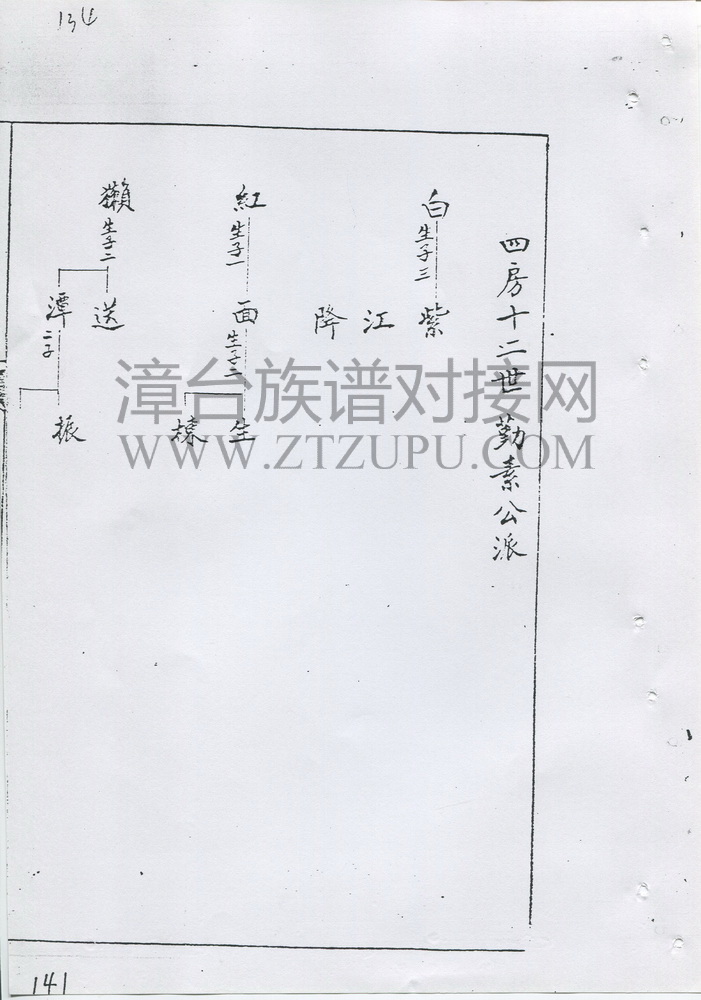 四房十二世勤素公派
白生子三
紫
江
降
紅生子一
面生子二
生
煉
獺生子二
送
潭二子
振
漳台族谱对接网
WWW.ZTZUPU.COM
141